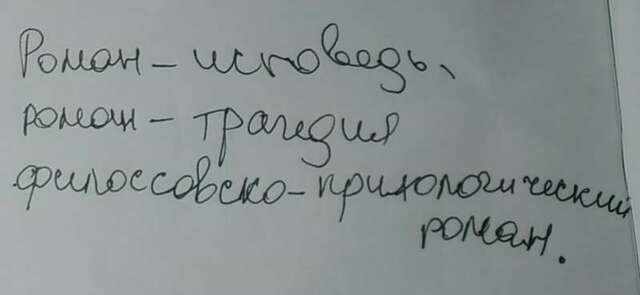 Роман – исповедь,
роман – трагедия
филоссовско-психологический
роман.